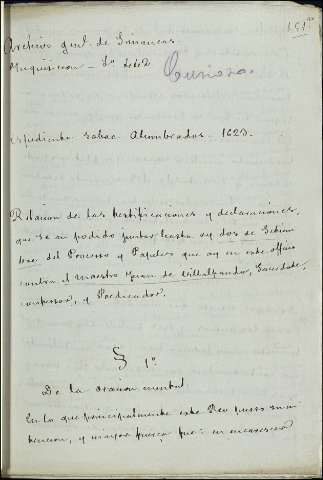 191
Archivo genl. de Simancas
Inquisicion - Lo 262
Curioso.
Espediente sobre Alumbrados. 1623.
Relacion de las testificaciones y declaraciones,
que se an podido juntar hasta oy dos de Setiem
bre del Processo y Papeles que ay en este officio
contra el maestro Juan de Villalpando, Sacerdote,
confessor, y Predicador.
§ 1o.
De la oracion mental
En lo que principalmente este Reo puso su in
tencion, y mayor fuerça fue: en encarecer